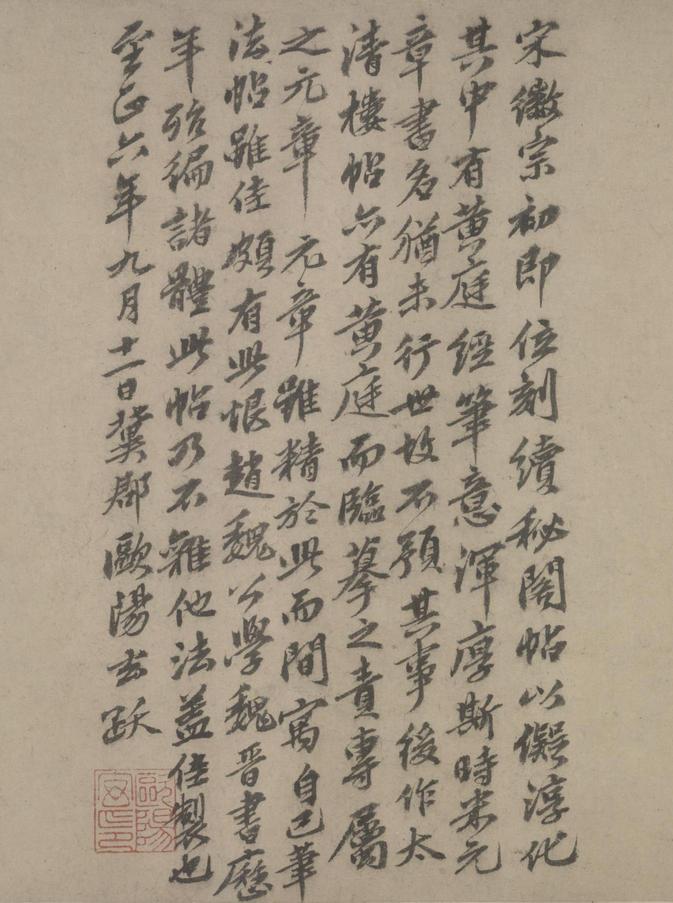 宋徽宗初即位刻續秘閣帖以儗淳化
其中有黄庭經筆意渾厚斯時米元
章書名猶未行世故不預其事後作太
清樓帖亦有黄庭而臨摹之責專屬
之元章元章雖精於此而間寓自己筆
法帖雖佳頗有此恨趙魏公學魏晉書歷
年殆徧諸體此帖乃不雜他法葢佳製也
至正六年九月十一日冀郡歐陽玄跋
歐陽玄印